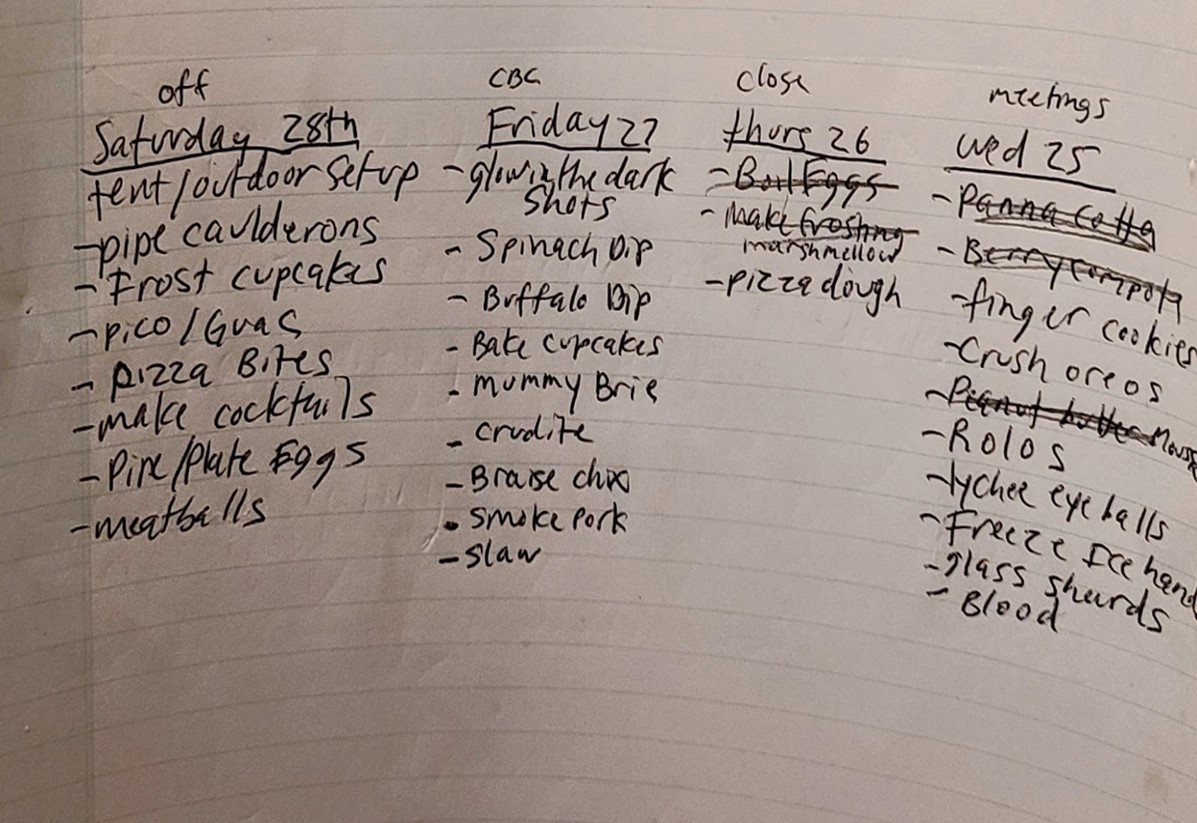 off
Saturday 28th
tent/outdoor setup
-pipe caulderons
- Frost cupcakes
-pico/Guac
- pizza Bites
-make cocktails
- Pipe/Plate Eggs
-meatballs
CBC
Friday 27
-glow in the dark
shots
- Spinach Dip
- Buffalo Dip
- Bake cupcakes
- Mummy Brie
- crudite
- Braise chx
• Smoke pork
-slaw
close
thurs 26
- Boil Eggs
- Make frosting
marshmellow
-pizza dough
meetings
wed 25
- Panna Cotta
- Berry compote
-finger cookies
-Crush oreos
-Peanut butter Mouss
-Rolos
-lychee eyeballs
- Freeze Ice hand
-glass shards
- Blood